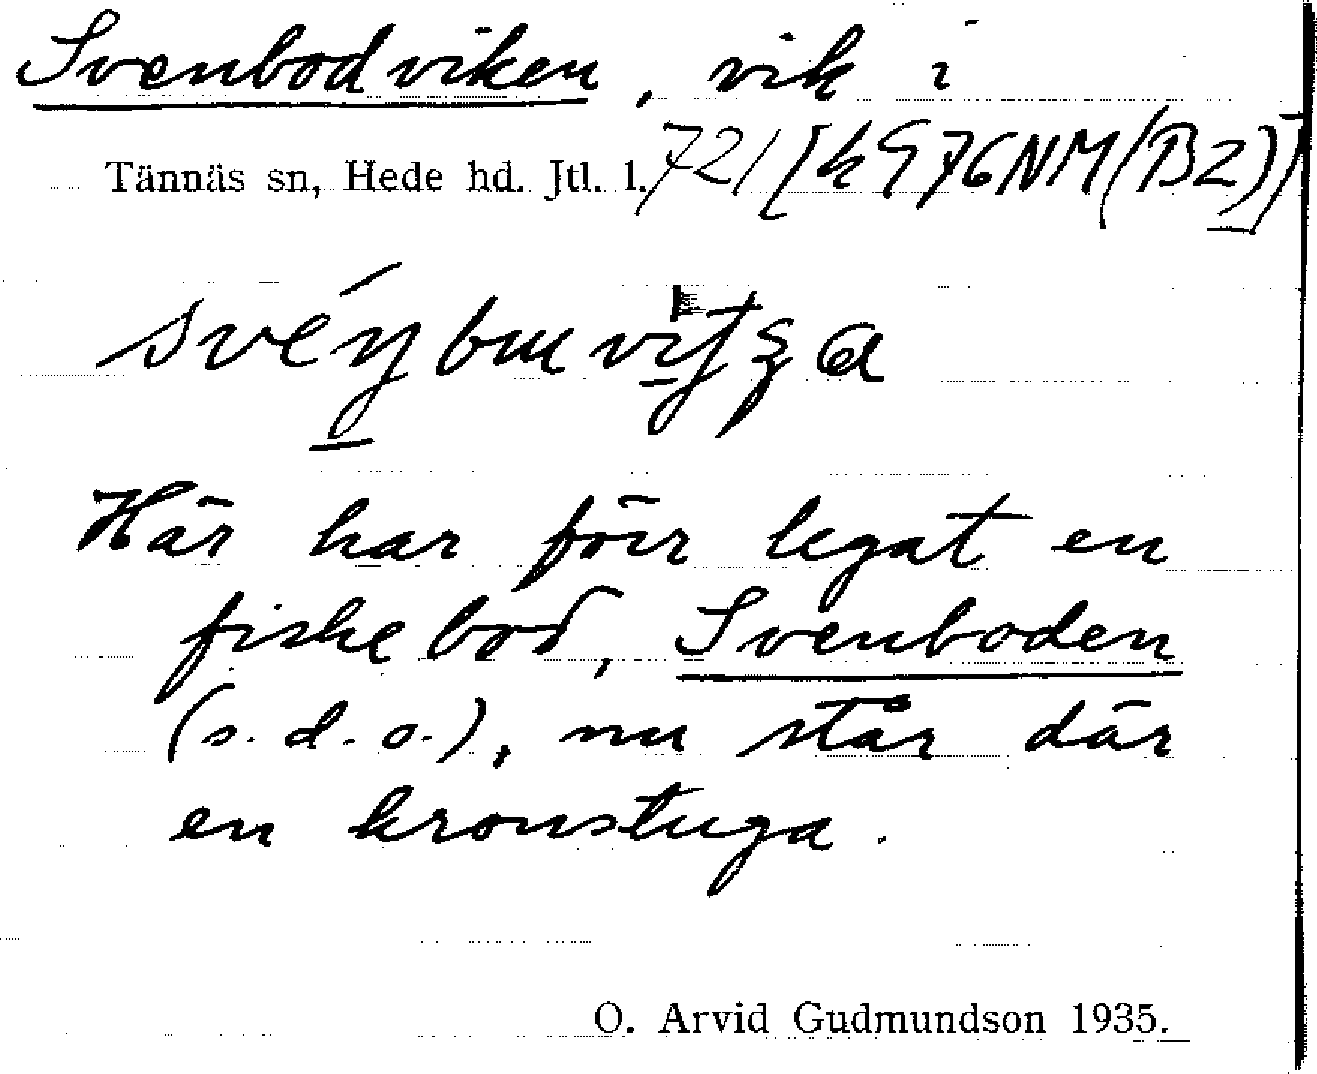 Svenbodviken, vik i
Tännäs sn, Hede hd. Jtl. l. 721 [k 976NM(B2)]
Här har förr legat en
fiskebod, Svenboden
(s.d.o.), nu står där
en kronstuga.
O. Arvid Gudmundson 1935.